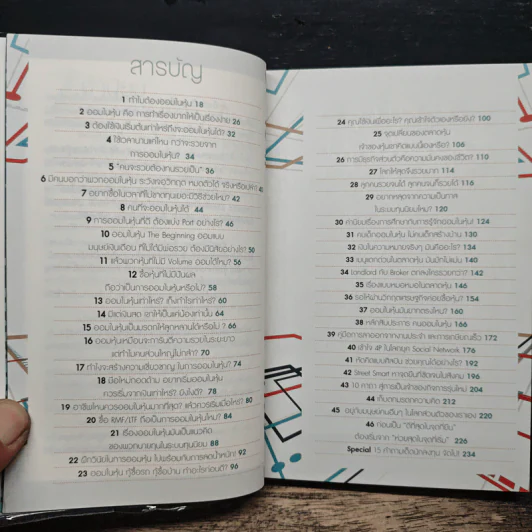 สารบัญ
1 ทำไมต้องออมในหุ้น 18
2 ออมในหุ้น คือ การทำเรื่องยากให้เป็นเรื่องง่าย 26
3 ต้องใช้เงินเริ่มต้นเท่าไหร่ถึงจะออมในหุ้นได้? 32
4 ใช้เวลานานแค่ไหน กว่าจะรวยจาก
การออมในหุ้น? 34
5 "คนจะรวยต้องทนรวยเป็น" 36
6 มีคนบอกว่าพวกออมในหุ้น ระวังเจอวิกฤติ หมดตัวได้ จริงหรือเปล่า?
7 อยากซื้อในราคาที่ไม่ขาดทุนเยอะมีวิธีช่วยไหม? 42
8 คนที่จะออมในหุ้นได้ 44
9 การออมในหุ้นที่ดี ต้องแบ่ง Port อย่างไร? 46
10 ออมในหุ้น The Beginning ออมแบบ
มนุษย์เงินเดือน ที่ไม่ได้มีพ่อรวย ต้องมีนิสัยอย่างไร? 50
11 แล้วพวกหุ้นที่ไม่มี Volume ออมได้ไหม? 56
12 ซื้อหุ้นที่ไม่มีปันผล
ถือว่าเป็นการออมในหุ้นหรือไม่? 58
13 ออมในหุ้นเท่าไหร่? เก็งกำไรเท่าไหร่? 60
14 มีแต่เงินสด ยากให้เป็นแค่น้องเท่านั้น 64
15 ออมในหุ้นเป็นมรดกให้ลูกหลานได้หรือไม่ ? 66
16 ออมในหุ้นเหมือนจะการันตีความรวยในระยะยาว
แต่ทำไมคนส่วนใหญ่ไม่กล้า? 70
17 ทำไงจะสร้างความเชี่ยวชาญ ในการออมในหุ้น? 74
18 มือใหม่ถอดด้าม อยากเริ่มออมในหุ้น
ควรเริ่มจากเงินเท่าไหร่? ยังไงดี? 78
19 อาชีพไหนควรออมในหุ้นมากที่สุด? แล้วควรเริ่มเมื่อไหร่? 80
20 ซื้อ RMF/LTF ถือเป็นการออมในหุ้นไหม? 84
21 เรื่องออมในหุ้นมันเป็นแนวคิด
ของพวกนายทุนในระบบทุนนิยม 88
22 ฝึกวินัยในการออมหุ้น ไปพร้อมกับการลดน้ำหนัก! 92
23 ออมในหุ้น กู้ซื้อรถ กู้ซื้อบ้าน ทำอะไรก่อนดี? 96
24 คุณใช้เงินซื้ออะไร? คุณเข้าใจตัวเองหรือยัง? 100
25 จุดเปลี่ยนของตลาดหุ้น
106
26 การมีธุรกิจส่วนตัวคือความมั่นคงของชีวิต? 110
27 ใครให้สูตรโกงรวยมา? 114
28 ลูกคนรวยจนได้ ลูกคนจนก็รวยได้ 116
29 อยากหลุดจากความเป็นทาส
ในระบบทุนนิยมไหม? 120
30 ค่านิยมเรื่องการศึกษากับการรู้จักออมในหุ้น! 124
31 คนเด็กออมในหุ้น ไม่คนเด็กสร้างบ้าน 130
32 ยิปในความหมายจริงๆ มันคืออะไร? 134
33 มนุษย์ดวงในตลาดหุ้น มันมักไม่แม่น 140
34 landlord กับ Broker ตกลงใครรวยกว่า? 142
35 เรื่องแบบหมอหมอในตลาดหุ้น 146
36 รถให้ผ่านวิกฤตเศรษฐกิจค่อยซื้อหุ้น? 154
37 ออมในหุ้นมันยากตรงไหน? 162
38 หลักสิบประการ คนออมในหุ้น 166
39 คู่มือการลาออกจากงานประจำ และการเกษียณเร็ว 172
40 เข้าใจ 4F ในโลกยุค Social Network 176
41 คิดถึงแบบศิลปิน ช่วยคุณได้อย่างไร? 192
42 Street Smart ศาสตร์ชีวิตที่สอนในสังคม 196
43 10 คาถา สู่การเป็นเจ้าของกิจการรุ่นใหม่ 204
44 เก็บตกมรดกความคิด 210
45 อยู่กับมนุษย์คนอื่นๆ ในโลกส่วนตัวของเราเอง 220
46 ก่อนเป็น "ชีวิตสุดโบยุคที่ดีขึ้น"
226
Special 15 คำถามเด็ดนักลงทุน จัดไป! 234